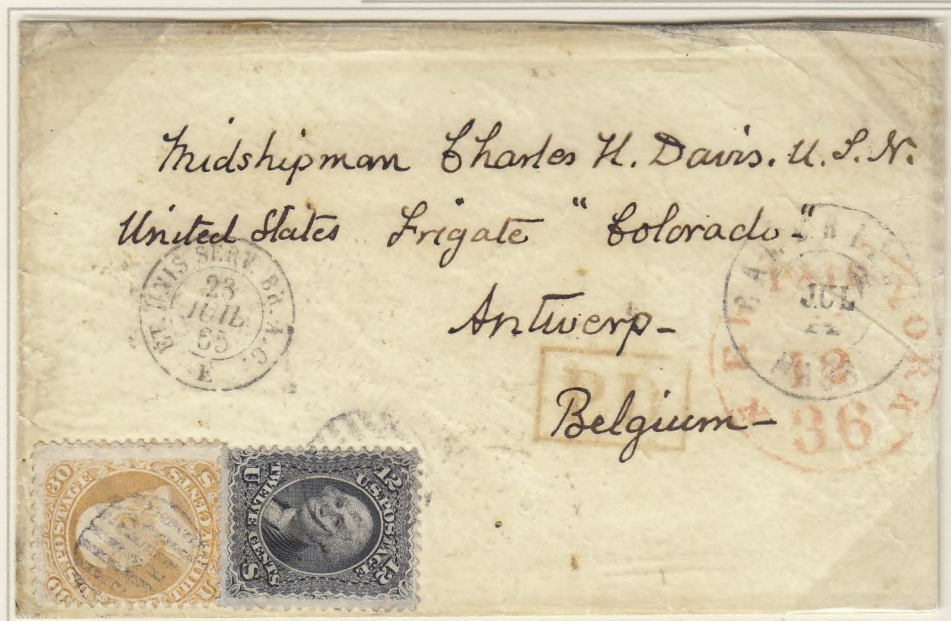 Midshipman Charles H. Davis. U.S.N.
United States Frigate "Colorado"-
Antwerp-
Belgium-
ET. UNIS SERV. BR. A.C.
23
JUIL.
65
E
PD
JUL
PAID
12
NEW YORK
36
30
U.S. POSTAGE
30
THIRTY CENTS
U S
12
U.S. POSTAGE
12
TWELVE CENTS
U S